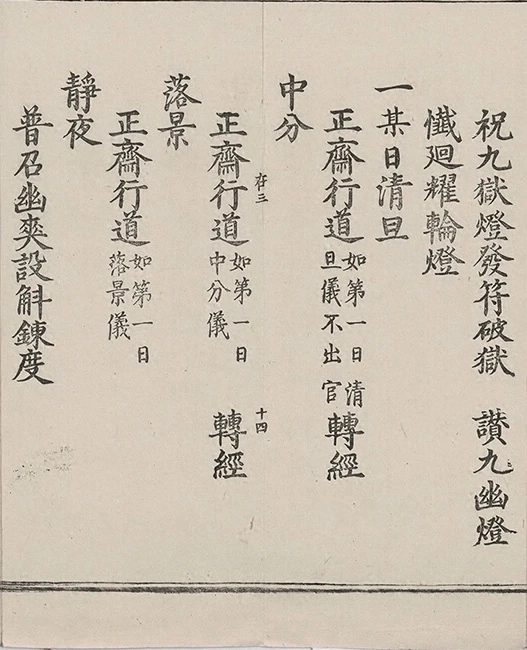 祝九獄燈發符破獄　讃九幽燈
懺廻耀輪燈
一某日清旦
正齋行道如第一日清旦儀不出官轉經
中分
正齋行道如第一日中分儀　轉經
存三　十四
落景
正齋行道如第一日落景儀
靜夜
普召幽爽設斛鍊度